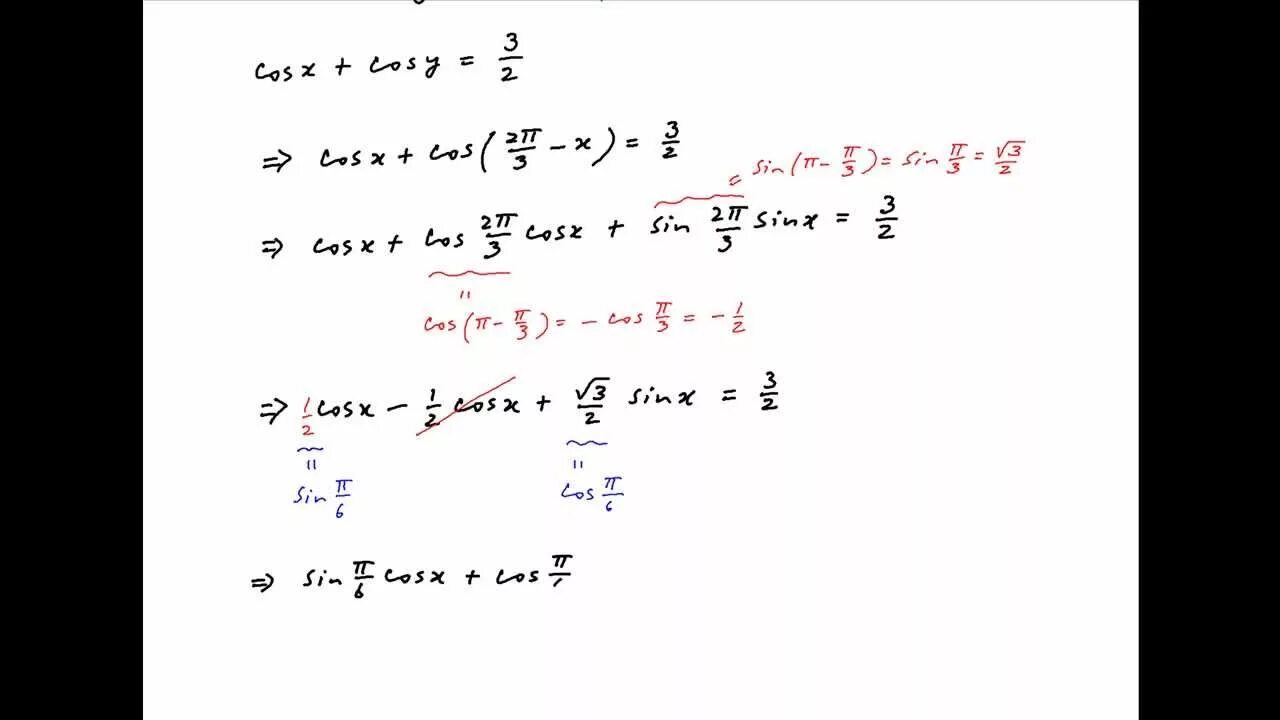 cosx + cosy = 3/2
⇒ cosx + cos(2π/3 − x) = 3/2
= sin(π − π/3) = sin π/3 = √3/2
⇒ cosx + cos 2π/3 cosx + sin 2π/3 sinx = 3/2
=
cos(π − π/3) = − cos π/3 = − 1/2
⇒ 1/2 cosx − 1/2 cosx + √3/2 sinx = 3/2
= =
sin π/6 cos π/6
⇒ sin π/6 cosx + cos π/